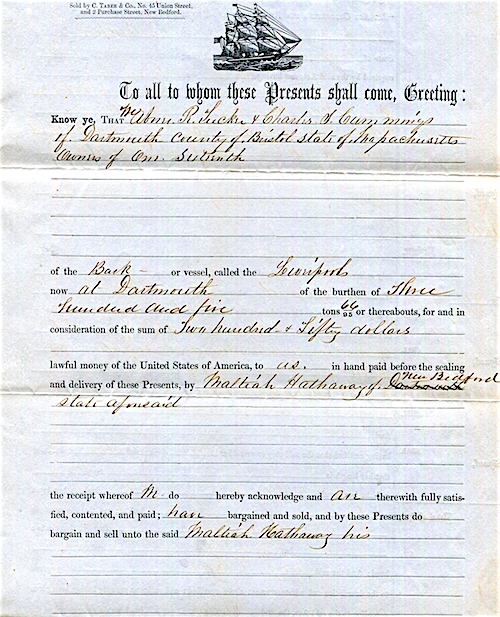 Sold by C. TABER & Co., No. 45 Union Street,
and 2 Purchase Street, New Bedford.
To all to whom these Presents shall come, Greeting:
Know ye, THAT We Abner R. Tucker & Charles S. Cummings
of Dartmouth County of Bristol State of Massachusetts
Owners of One Sixteenth
of the Bark or vessel, called the Liverpool
now at Dartmouth of the burthen of Three
hundred and five tons 66/95 or thereabouts, for and in
consideration of the sum of Two hundred & Fifty dollars
lawful money of the United States of America, to us. in hand paid before the sealing
and delivery of these Presents, by Hathaway of New Bedford
State aforesaid
the receipt whereof We do hereby acknowledge and are therewith fully satis-
fied, contented, and paid; have bargained and sold, and by these Presents do
bargain and sell unto the said Hathaway his